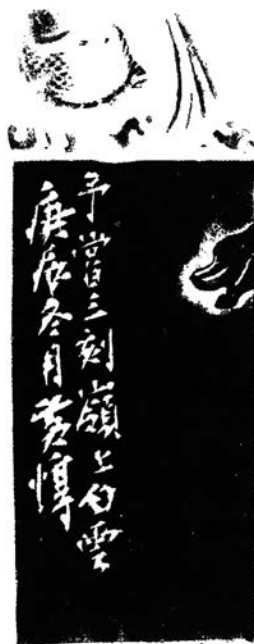 予嘗三刻嶺上白雲
庚辰冬月黄惇